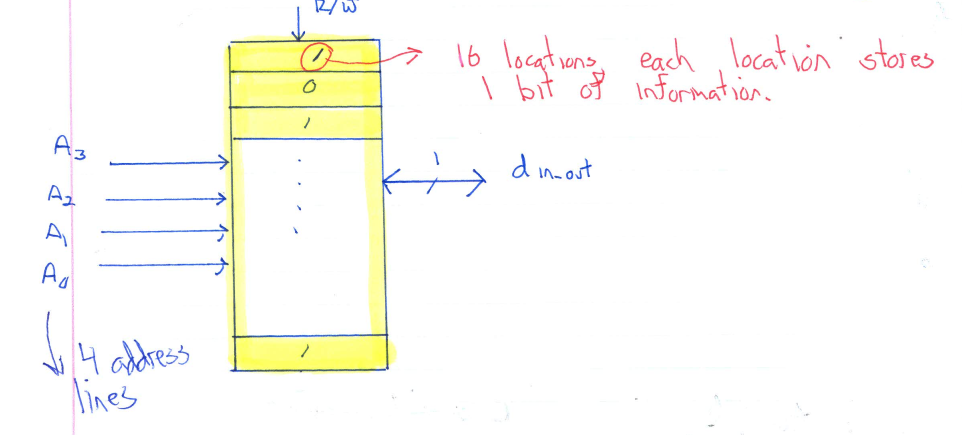 R/W
1
16 locations, each location stores
1 bit of information.
0
1
A3
1
d in-out
A2
A1
A0
1
4 address
lines